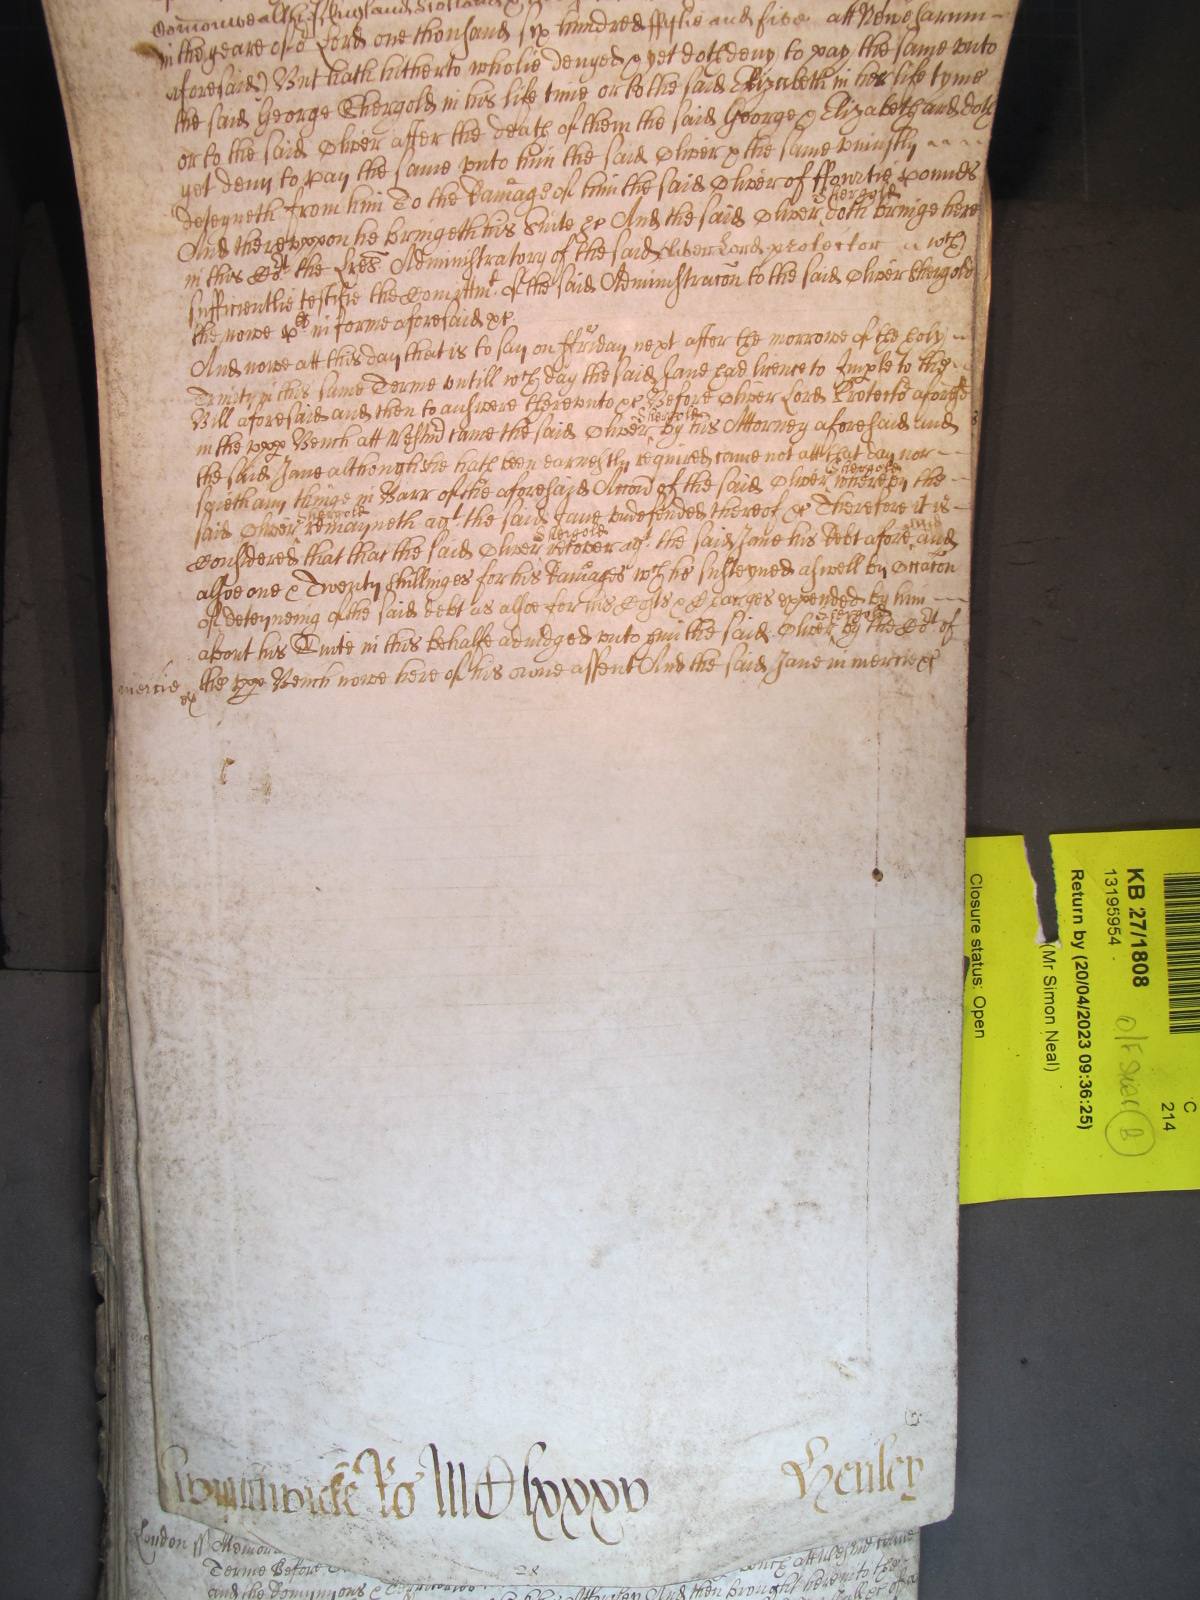 Comonwealth of England Scotland &
in the yeare of or Lord one thousand six hundred ffyftie and five att New Sarum
aforesaid) But hath hitherto wholie denyed & yet doth deny to pay the same unto
the said George Shergold in his life time or to the said Elizabeth in her life tyme
or to the said Oliver after the death of them the said George & Elizabeth and doth
yet deny to pay the same unto him the said Oliver & the same uniustly
deteyneth from him To the damage of him the said Oliver of ffowrtie pounds
And thereuppon he bringeth his suite &c And the said Oliver Shergold doth bringe here
in this Cort the Lres Administratory of the said Oliver Lord protector wch
sufficientlie testifie the Comittmt of the said Administracon to the said Oliver Shergold
the nowe plt in forme aforesaid &c
And nowe att this day that is to say on ffriday next after the morrowe of the holy
Trinity in this same Terme untill wch day the said Jane had licence to Imple to the
Bill aforesaid and then to answere thereunto &c Before Oliver Lord Protector aforesd
in the upp Bench att Westmr came the said Oliver Shergold by his Attorney aforesaid And
the said Jane although she hath been earnestly required came not att that day nor
saieth any thinge in Barr of the aforesaid Accon of the said Oliver Shergold whereby the
said Oliver Shergold remayneth agt the said Jane undefended thereof &c Therefore it is
Considered that that the said Oliver Shergold recover agt the said Jane his debt aforesaid and
alsoe one & Twenty shillinges for his damages wch he susteyned aswell by occacon
of deteyneing of the said debt as alsoe for his Costs & Charges expended by him
about his Suite in this behalfe adiudged unto him the said Oliver Shergold by the Cort of
the upp Bench nowe here of his owne assent And the said Jane in mercie &c
mercie
Ro MD lxxxv
Henley
London ss Memord
Terme Before
and the Dominyons & Territories
KB 27/1808
13195954
Return by (20/04/2023 09:36:25)
(Mr Simon Neal)
Closure status: Open
C
214